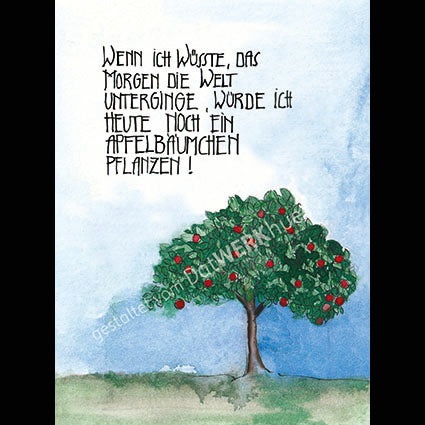 WENN ICH WÜSSTE, DAS
MORGEN DIE WELT
UNTERGINGE, WÜRDE ICH
HEUTE NOCH EIN
APFELBÄUMCHEN
PFLANZEN!
gestaltet vom DatWERKhus